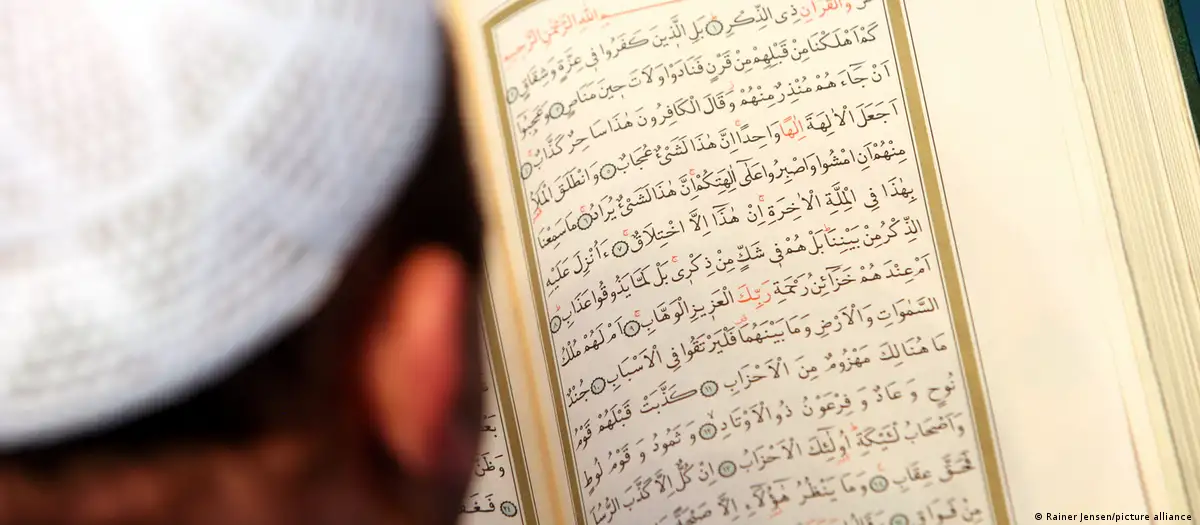 اللّٰهِ الرَّحْمٰنِ الرَّحِيمِ
وَالْقُرْاٰنِ ذِى الذِّكْرِ ١ بَلِ الَّذِينَ كَفَرُوا فِى عِزَّةٍ وَشِقَاقٍ ٢
كَمْ اَهْلَكْنَا مِنْ قَبْلِهِمْ مِنْ قَرْنٍ فَنَادَوْا وَلَاتَ حِينَ مَنَاصٍ ٣ وَعَجِبُوا
اَنْ جَاءَهُمْ مُنْذِرٌ مِنْهُمْ وَقَالَ الْكَافِرُونَ هٰذَا سَاحِرٌ كَذَّابٌ ٤
اَجَعَلَ الْاٰلِهَةَ اِلٰهًا وَاحِدًا اِنَّ هٰذَا لَشَىْءٌ عُجَابٌ ٥ وَانْطَلَقَ الْمَلَاُ
مِنْهُمْ اَنِ امْشُوا وَاصْبِرُوا عَلٰٓى اٰلِهَتِكُمْ اِنَّ هٰذَا لَشَىْءٌ يُرَادُ ٦ مَا سَمِعْنَا
بِهٰذَا فِى الْمِلَّةِ الْاٰخِرَةِ اِنْ هٰذَٓا اِلَّا اخْتِلَاقٌ ٧ ءَاُنْزِلَ عَلَيْهِ
الذِّكْرُ مِنْ بَيْنِنَا بَلْ هُمْ فِى شَكٍّ مِنْ ذِكْرِى بَلْ لَمَّا يَذُوقُوا عَذَابِ ٨
اَمْ عِنْدَهُمْ خَزَٓائِنُ رَحْمَةِ رَبِّكَ الْعَزِيزِ الْوَهَّابِ ٩ اَمْ لَهُمْ مُلْكُ
السَّمٰوَاتِ وَالْاَرْضِ وَمَا بَيْنَهُمَا فَلْيَرْتَقُوا فِى الْاَسْبَابِ ١٠ جُنْدٌ
مَا هُنَالِكَ مَهْزُومٌ مِنَ الْاَحْزَابِ ١١ كَذَّبَتْ قَبْلَهُمْ قَوْمُ
نُوحٍ وَعَادٌ وَفِرْعَوْنُ ذُو الْاَوْتَادِ ١٢ وَثَمُودُ وَقَوْمُ لُوطٍ
وَاَصْحَابُ لْئَيْكَةِ اُولٰٓئِكَ الْاَحْزَابُ ١٣ اِنْ كُلٌّ اِلَّا كَذَّبَ الرُّسُلَ
فَحَقَّ عِقَابِ ١٤ وَمَا يَنْظُرُ هٰٓؤُلَٓاءِ اِلَّا صَيْحَةً
مِنْ فَوَاقٍ
© Rainer Jensen/picture alliance